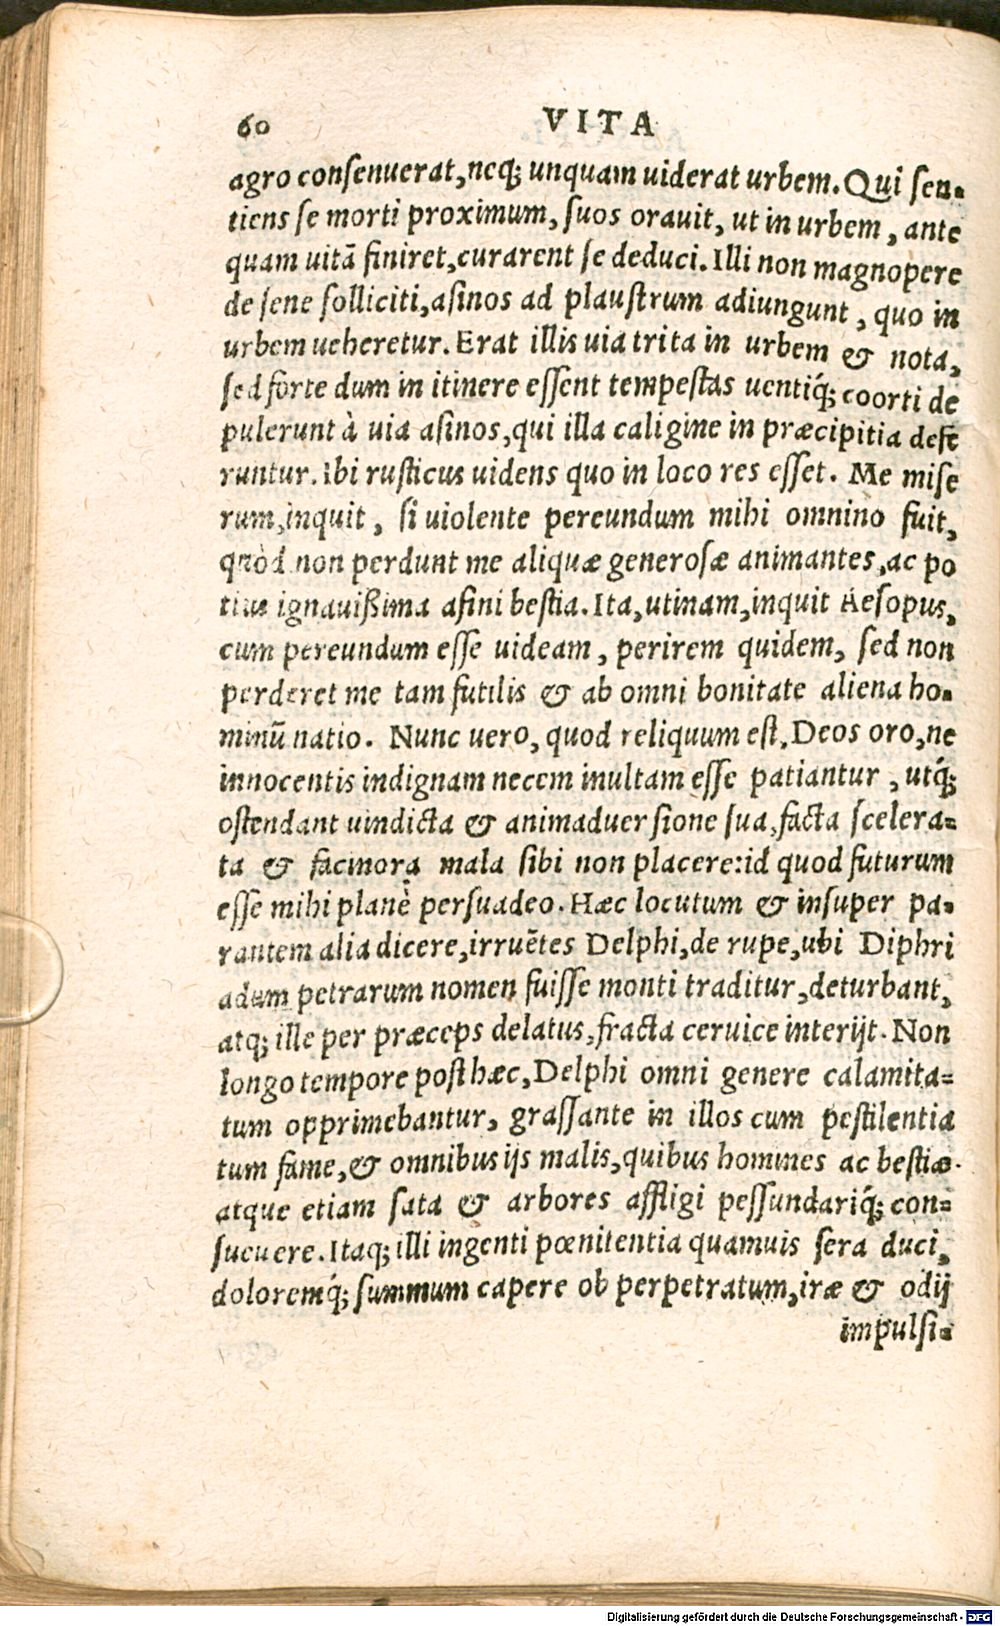 60 VITA
agro consenuerat, neq; unquam uiderat urbem. Qui sen-
tiens se morti proximum, suos orauit, ut in urbem, ante
quam uitā finiret, curarent se deduci. Illi non magnopere
de sene solliciti, asinos ad plaustrum adiungunt, quo in
urbem ueheretur. Erat illis uia trita in urbem & nota,
sed forte dum in itinere essent tempestas uentiq́; coorti de
pulerunt à uia asinos, qui illa caligine in præcipitia defe
runtur. Ibi rusticus uidens quo in loco res esset. Me mise
rum, inquit, si uiolente pereundum mihi omnino fuit,
quòd non perdunt me aliquæ generosæ animantes, ac po
tius ignauißima asini bestia. Ita, utinam, inquit Aesopus,
cum pereundum esse uideam, perirem quidem, sed non
perderet me tam futilis & ab omni bonitate aliena ho-
minū natio. Nunc uero, quod reliquum est, Deos oro, ne
innocentis indignam necem inultam esse patiantur, utq́;
ostendant uindicta & animaduersione sua, facta scelera-
ta & facinora mala sibi non placere: id quod futurum
esse mihi planè persuadeo. Hæc locutum & insuper pa-
rantem alia dicere, irruētes Delphi, de rupe, ubi Diphri
adum petrarum nomen fuisse monti traditur, deturbant,
atq; ille per præceps delatus, fracta ceruice interijt. Non
longo tempore post hæc, Delphi omni genere calamita-
tum opprimebantur, grassante in illos cum pestilentia
tum fame, & omnibus ijs malis, quibus homines ac bestiæ.
atque etiam sata & arbores affligi pessundariq́; con-
sueuere. Itaq; illi ingenti pœnitentia quamuis sera duci,
doloremq́; summum capere ob perpetratum, iræ & odij
impulsi-
Digitalisierung gefördert durch die Deutsche Forschungsgemeinschaft - DFG